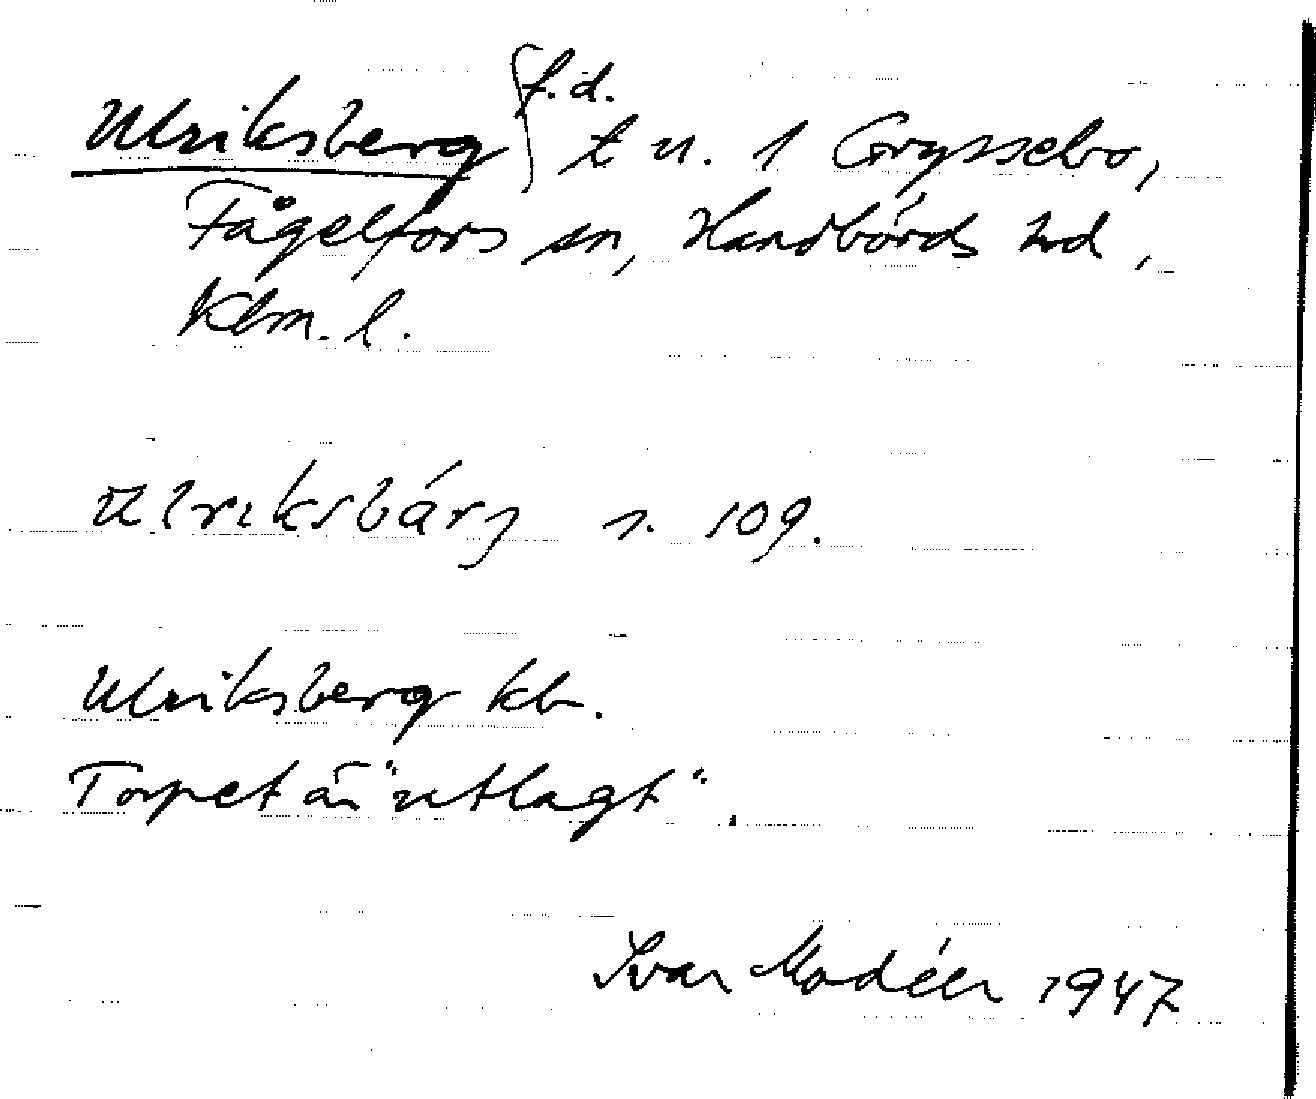 Ulriksberg f.d. t u. 1 Gryssebo,
Fågelfors sn, Handbörds hd,
Klm. l.
Ulriksbárj s. 109.
Ulriksberg kb.
Torpet är "utlagt".
Ivar Modéer 1947